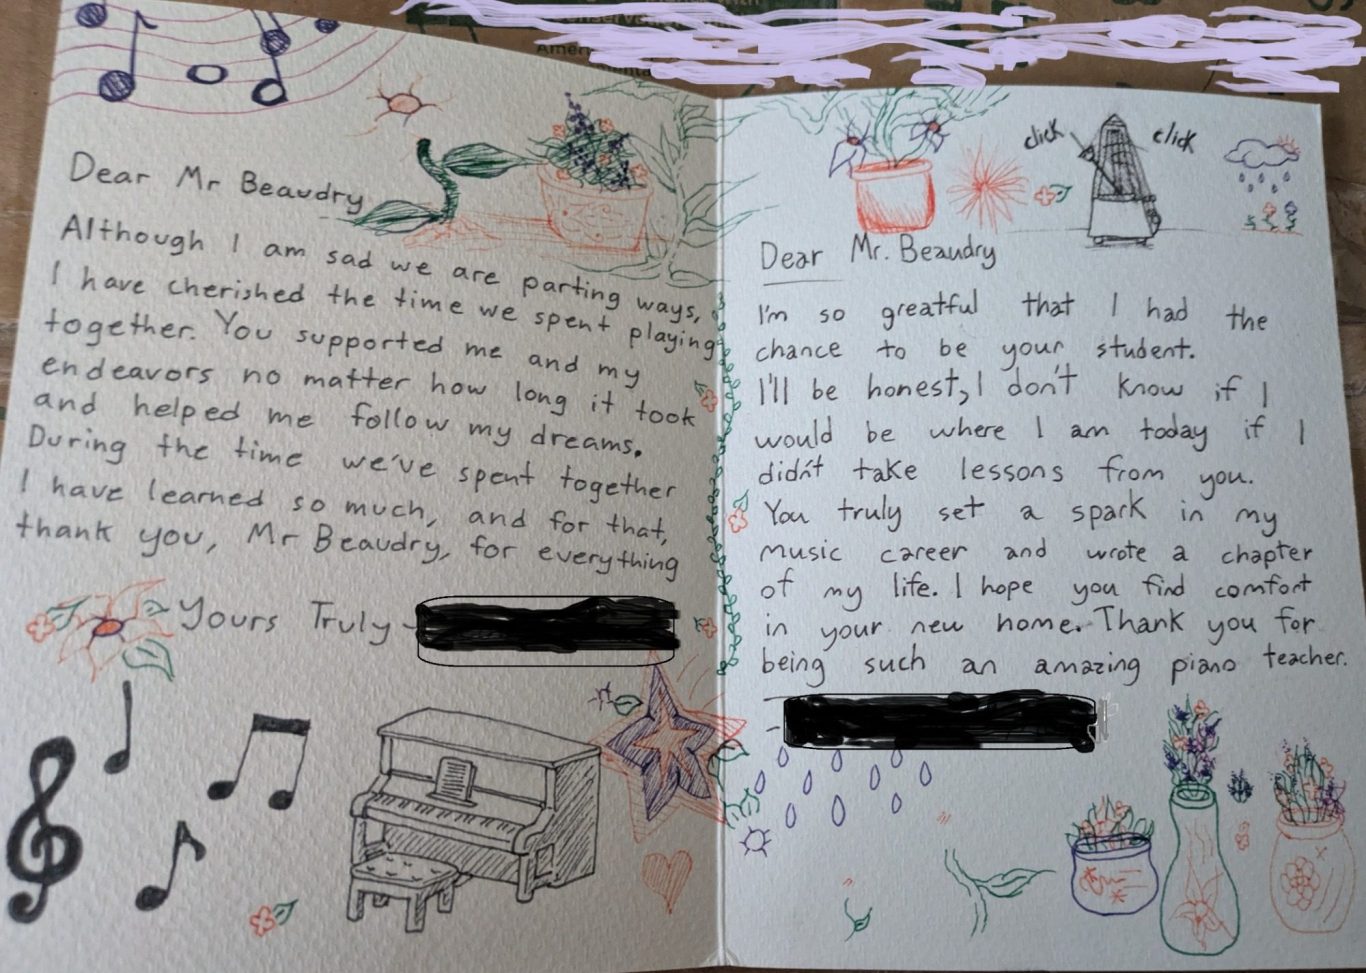 Dear Mr Beaudry
Although I am sad we are parting ways,
I have cherished the time we spent playing
together. You supported me and my
endeavors no matter how long it took
and helped me follow my dreams.
During the time we've spent together
I have learned so much, and for that,
thank you, Mr Beaudry, for everything
Yours Truly
click click
Dear Mr. Beaudry
I'm so greatful that I had the
chance to be your student.
I'll be honest, I don't know if I
would be where I am today if I
didn't take lessons from you.
You truly set a spark in my
music career and wrote a chapter
of my life. I hope you find comfort
in your new home. Thank you for
being such an amazing piano teacher.